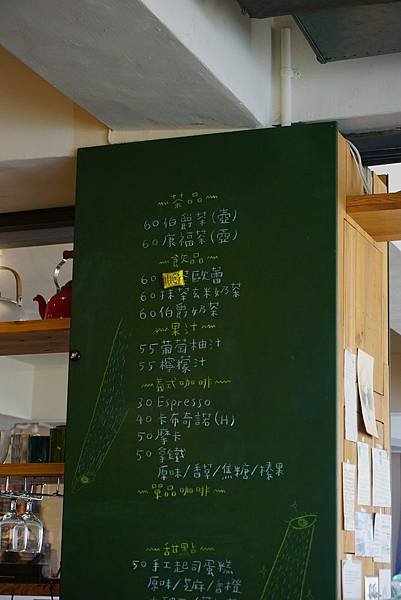 ~茶品~
60伯爵茶(壺)
60康福茶(壺)
~飲品~
60 歐蕾
60抹茶玄米奶茶
60伯爵奶茶
~果汁~
55葡萄柚汁
55檸檬汁
~義式咖啡~
30 Espresso
40卡布奇諾(H)
50摩卡
50拿鐵
原味/香草/焦糖/榛果
~單品咖啡~
~甜點~
50手工起司蛋糕
原味/芝麻/香橙